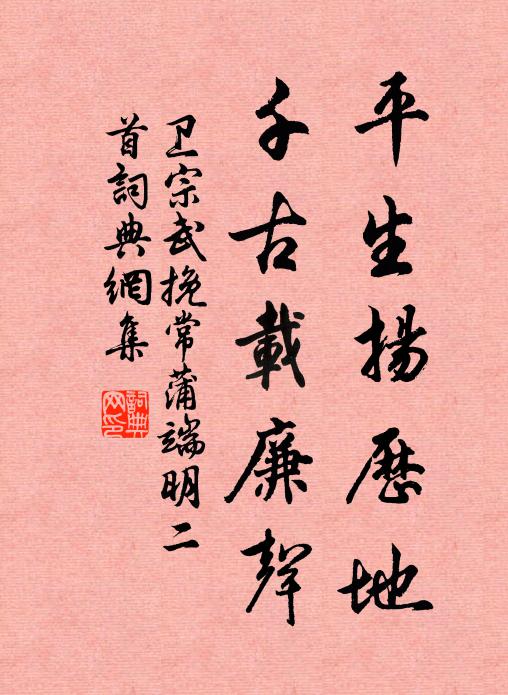 平生揚歷地
千古載廉聲
卫宗武挽常蒲端明二
首詞典網集
詞典网印